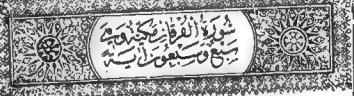 سورة الفرقان مكية وهي
سبع وسبعون آية